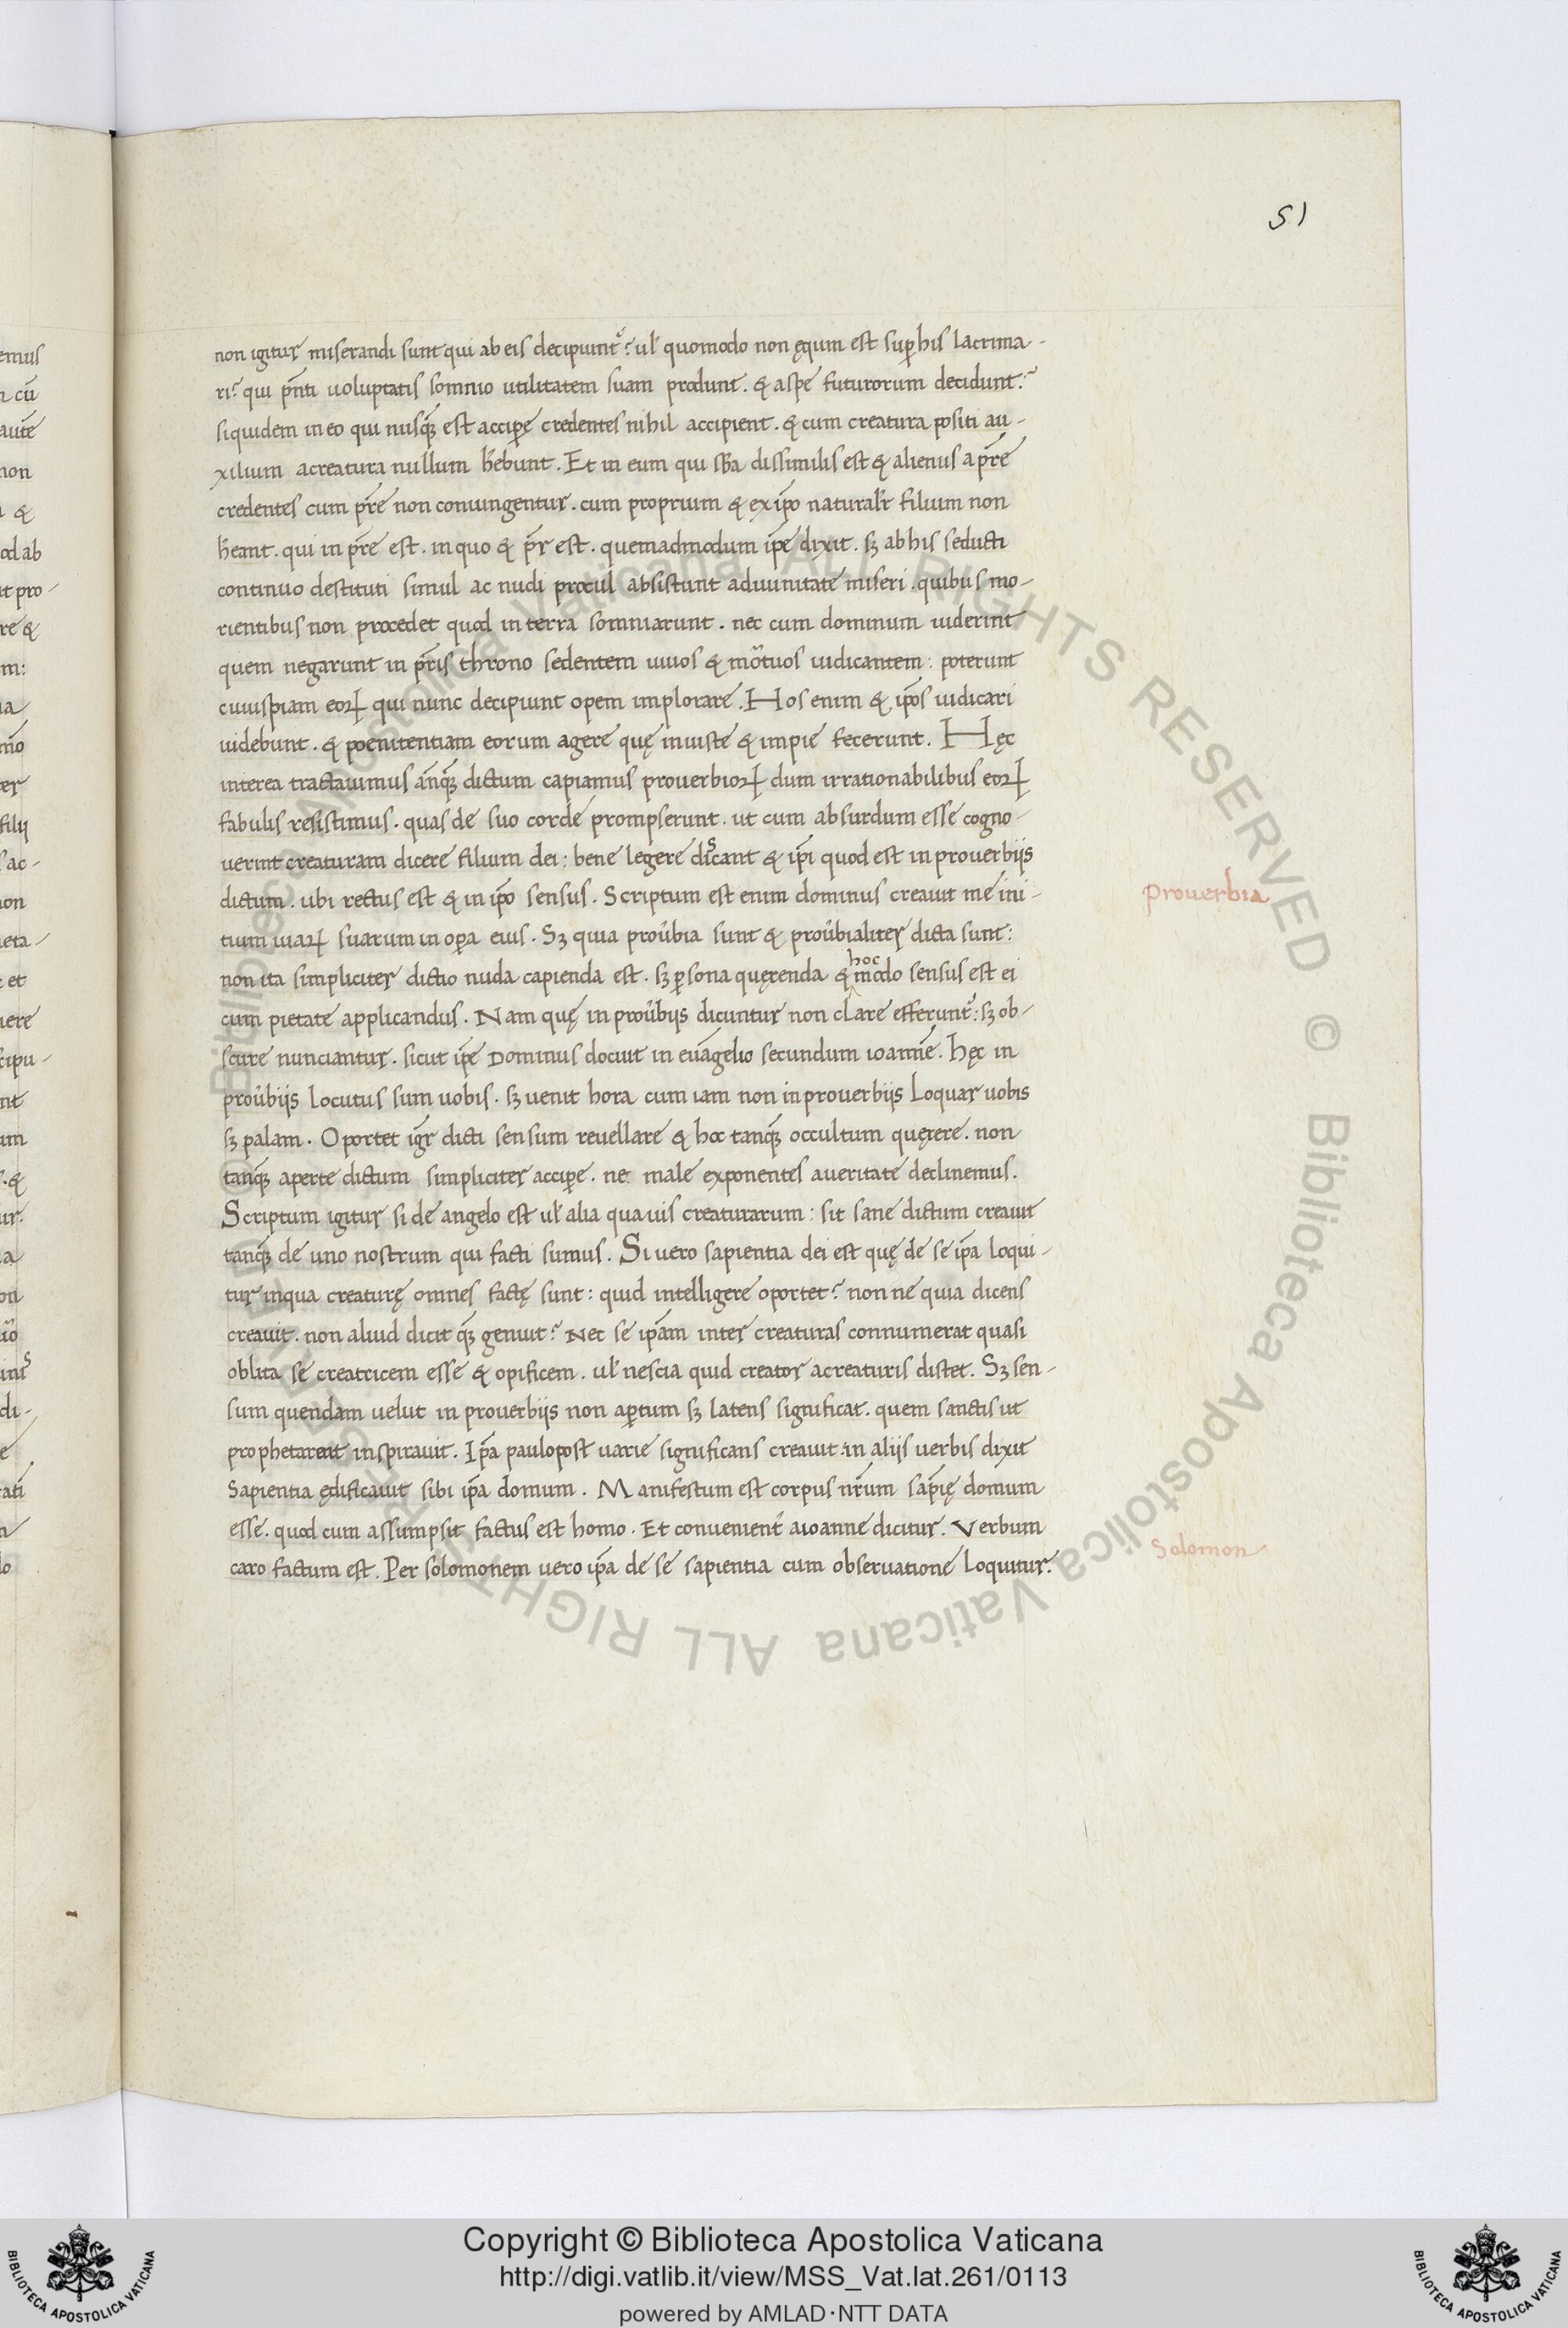 51
non igitur miserandi sunt qui ab eis decipiunt᷑? ul̃ quomodo non ęqum est sup his lacrima-
ri? qui p̃nti uoluptatis somnio utilitatem suam produnt. & a spe futurorum decidunt?
siquidem in eo qui nusq̃ est accipe credentes nihil accipient. & cum creatura positi au-
xilium a creatura nullum h̃ebunt. Et in eum qui sb̃a dissimilis est & alienus a pr̃e
credentes cum pr̃e non coniungentur. cum proprium & ex ip̃o naturalr̃ filium non
h̃eant. qui in pr̃e est. in quo & pr̃ est. quemadmodum ip̃e dixit. sꝫ ab his seducti
continuo destituti simul ac nudi procul absistunt a diuinitate miseri. quibus mo-
rientibus non procedet quod in terra somniarunt. nec cum dominum uiderint
quem negarunt in pr̃is throno sedentem uiuos & mõtuos iudicantem: poterunt
cuiuspiam eoꝝ qui nunc decipiunt opem implorare. Hos enim & ip̃os iudicari
uidebunt. & poenitentiam eorum agere quę iniuste & impie fecerunt. Hęc
interea tractauimus añq̃ dictum capiamus prouerbioꝝ dum irrationabilibus eoꝝ
fabulis resistimus. quas de suo corde prompserunt. ut cum absurdum esse cogno-
uerint creaturam dicere filium dei: bene legere dicant & ip̃i quod est in prouerbijs
dictum. ubi rectus est & in ip̃o sensus. Scriptum est enim dominus creauit me ini-
tium uiaꝝ suarum in opa eius. Sꝫ quia proũbia sunt & proũbialiter dicta sunt:
non ita simpliciter dictio nuda capienda est. sꝫ psona quęrenda & hoc modo sensus est ei
cum pietate applicandus. Nam quę in proũbijs dicuntur non clare efferunt᷑: sꝫ ob-
scure nunciantur. sicut ip̃e Dominus docuit in euãgelio secundum ioannẽ. Hęc in
proũbijs locutus sum uobis. sꝫ uenit hora cum iam non in prouerbijs loquar uobis
sꝫ palam. Oportet igr̃ dicti sensum reuellare & hoc tanq̃ occultum quęrere. non
tanq̃ aperte dictum simpliciter accipe. ne male exponentes a ueritate declinemus.
Scriptum igitur si de angelo est ul̃ alia quauis creaturarum: sit sane dictum creauit
tanq̃ de uno nostrum qui facti sumus. Si uero sapientia dei est quę de se ip̃a loqui-
tur in qua creaturę omnes factę sunt: quid intelligere oportet? non ne quia dicens
creauit. non aliud dicit q̃ genuit? Nec se ip̃am inter creaturas connumerat quasi
oblita se creatricem esse & opificem. ul̃ nescia quid creator a creaturis distet. Sꝫ sen-
sum quendam uelut in prouerbijs non aptum sꝫ latens significat. quem sanctis ut
prophetarent inspirauit. Ip̃a paulopost uarie significans creauit in alijs uerbis dixit
Sapientia ędificauit sibi ip̃a domum. Manifestum est corpus nr̃um sap̃ię domum
esse. quod cum assumpsit factus est homo. Et conuenient᷑ a ioanne dicitur. Verbum
caro factum est. Per solomonem uero ip̃a de se sapientia cum obseruatione loquitur.
prouerbia
Solomon
Copyright © Biblioteca Apostolica Vaticana
http://digi.vatlib.it/view/MSS_Vat.lat.261/0113
powered by AMLAD·NTT DATA